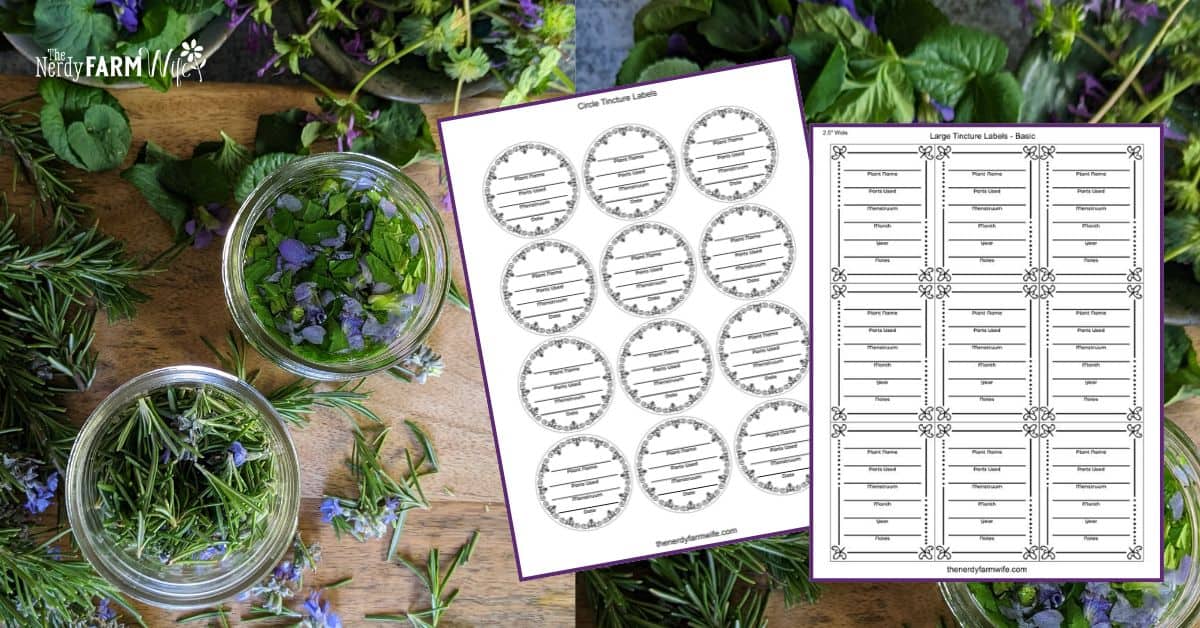 The
Nerdy FARM Wife
Circle Tincture Labels
Plant Name
Parts Used
Menstruum
Date
Plant Name
Parts Used
Menstruum
Date
Plant Name
Parts Used
Menstruum
Date
Plant Name
Parts Used
Menstruum
Date
Plant Name
Parts Used
Menstruum
Date
Plant Name
Parts Used
Menstruum
Date
Plant Name
Parts Used
Menstruum
Date
Plant Name
Parts Used
Menstruum
Date
Plant Name
Parts Used
Menstruum
Date
Plant Name
Parts Used
Menstruum
Date
Plant Name
Parts Used
Menstruum
Date
Plant Name
Parts Used
Menstruum
Date
thenerdyfarmwife.com
2.5" Wide
Large Tincture Labels - Basic
Plant Name
Parts Used
Menstruum
Month
Year
Notes
Plant Name
Parts Used
Menstruum
Month
Year
Notes
Plant Name
Parts Used
Menstruum
Month
Year
Notes
Plant Name
Parts Used
Menstruum
Month
Year
Notes
Plant Name
Parts Used
Menstruum
Month
Year
Notes
Plant Name
Parts Used
Menstruum
Month
Year
Notes
Plant Name
Parts Used
Menstruum
Month
Year
Notes
Plant Name
Parts Used
Menstruum
Month
Year
Notes
Plant Name
Parts Used
Menstruum
Month
Year
Notes
thenerdyfarmwife.com